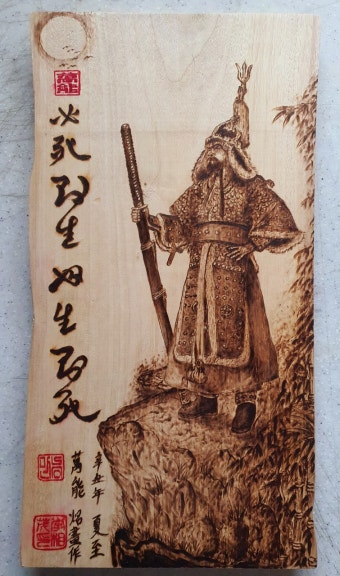 必死則生必生則死
辛丑年 夏至
萬能 烙畫作